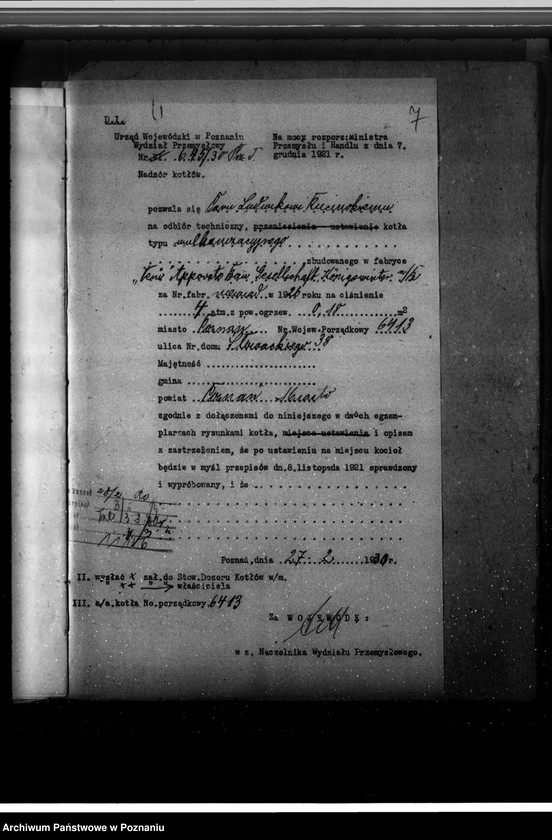 D.I.
7
Urząd Wojewódzki w Poznaniu
Wydział Przemysłowy
Nr.
Nadzór kotłów.
Na mocy rozporz:Ministra
Przemysłu i Handlu z dnia 7.
grudnia 1921 r.
pozwala się Panu Ludwikowi
na odbiór techniczny, przeniesienie - ustawienie kotła
typu wulkanizacyjnego
zbudowanego w fabryce
Apparatebau Gesellschaft Königswinter
za Nr.fabr. w 1926 roku na ciśnienie
4 atm.z pow.ogrzew. 0,18 m2
miasto Poznań Nr.Wojew.Porządkowy 6413
ulica Nr.domu Słowackiego 38
Majętność
gmina
powiat Poznań Miasto
zgodnie z dołączonemi do niniejszego w dwóch egzem-
plarzach rysunkami kotła, miejsca ustawienia i opisem
z zastrzeżeniem, że po ustawieniu na miejscu kocioł
będzie w myśl przepisów dn.8.listopada 1921 sprawdzony
i wypróbowany, i że
Poznań,dnia 27. 2 1930r.
II. wysłać x zał.do Stow.Dozoru Kotłów w/m.
x x właściciela
III. a/a.kotła No.porządkowy 6413
Za WOJEWODĘ:
w z. Naczelnika Wydziału Przemysłowego.
Archiwum Państwowe w Poznaniu